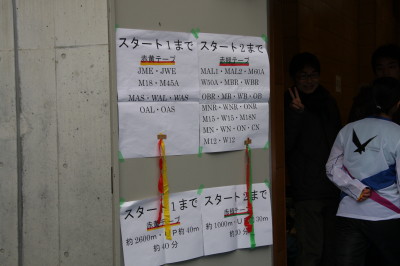 スタート1まで
赤黄テープ
JME・JWE
M18・M45A
MAS・WAL・WAS
OAL・OAS
スタート2まで
赤緑テープ
MAL1・MAL2・M60A
W50A・MBR・WBR
OBR・MB・WB・OB
MNR・WNR・ONR
M15・W15・M18N
MN・WN・ON・CN
M12・W12
スタート1まで
赤黄テープ
約2600m・UP約40m
約40分
スタート2まで
赤緑テープ
約1000m・U